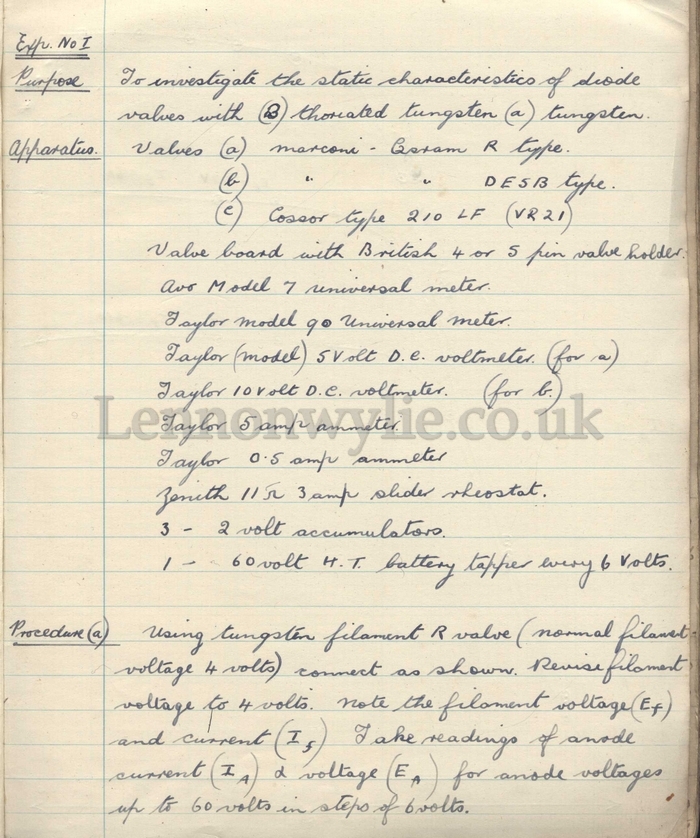 Exp. No I
Purpose To investigate the static characteristics of diode
valves with (B) thoriated tungsten (a) tungsten.
Apparatus. Valves (a) Marconi - Osram R type.
(b) " " DE5B type.
(c) Cossor type 210 LF (VR21)
Valve board with British 4 or 5 pin valve holder.
Avo Model 7 universal meter.
Taylor model 90 Universal meter.
Taylor (model) 5Volt D.C. voltmeter. (for a)
Taylor 10Volt D.C. voltmeter. (for b.)
Lennonwylie.co.uk
Taylor 5 amp ammeter
Taylor 0.5 amp ammeter
Zenith 11Ω 3amp slider rheostat.
3 - 2 volt accumulators.
1 - 60volt H.T. battery tapper every 6 Volts.
Procedure (a) Using tungsten filament R valve (normal filament
voltage 4 volts) connect as shown. Revise filament
voltage to 4 volts. Note the filament voltage (Ef)
and current (If) Take readings of anode
current (IA) & voltage (EA) for anode voltages
up to 60 volts in steps of 6 volts.